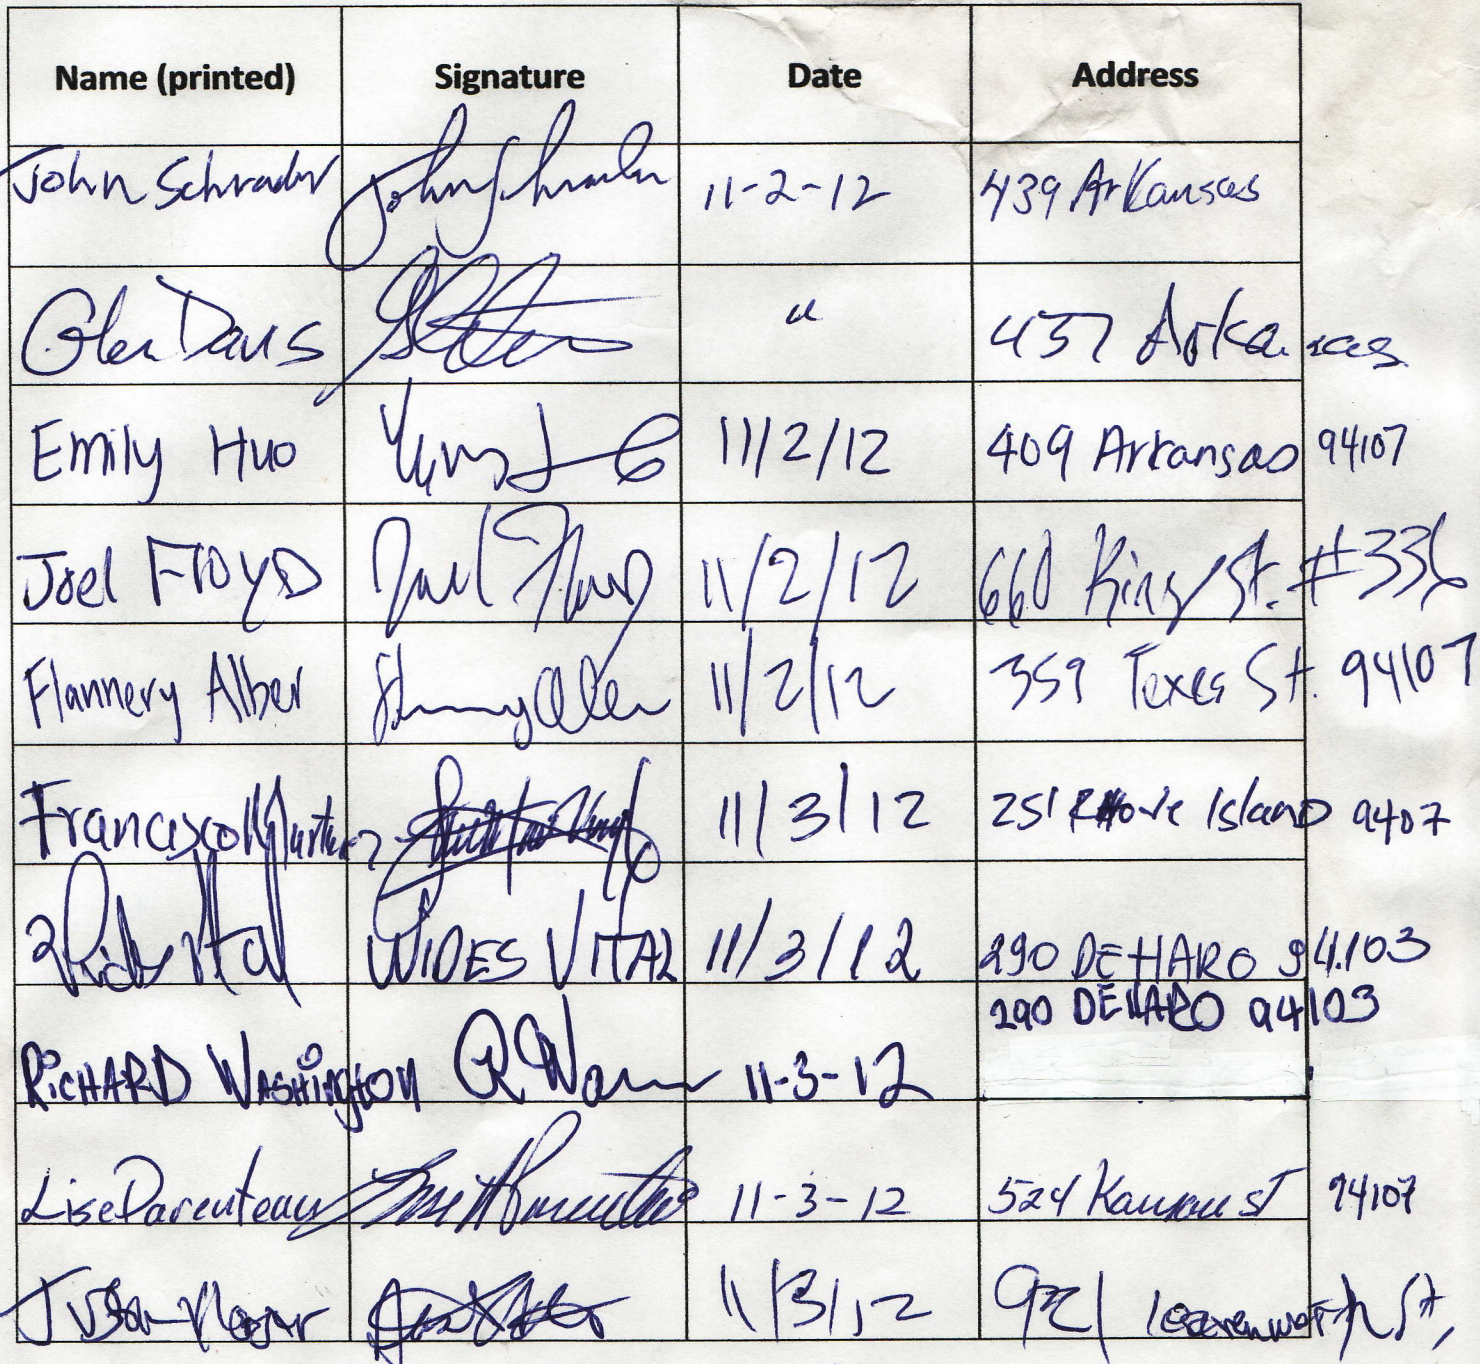 Name (printed) Signature Date Address
John Schrader John Schrader 11-2-12 439 Arkansas
Glen Davis " 457 Arkansas
Emily Huo 11/2/12 409 Arkansas 94107
Joel FlOYD Joel Floyd 11/2/12 660 King St. #336
Flannery Alber 11/2/12 359 Texas St. 94107
Francisco Martinez 11/3/12 251 Rhode Island 9407
WIDES VITAL 11/3/12 290 DEHARO 94103
290 DEHARO 94103
RiCHARD WASHington R Wa 11-3-12
Lise Parenteau 11-3-12 524 Kansas ST 94107
11/3/12 921 leavenworth St,